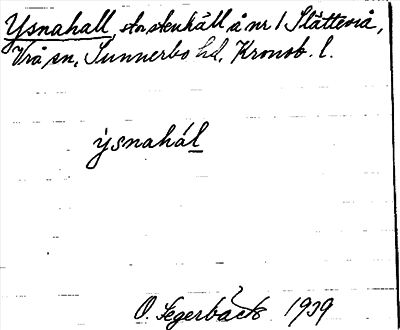 Ysnahall, stor stenhäll å nr 1 Slätteviå,
Vrå sn, Sunnerbo hd, Kronob. l.
ýsnahál
O. Segerbäck 1939